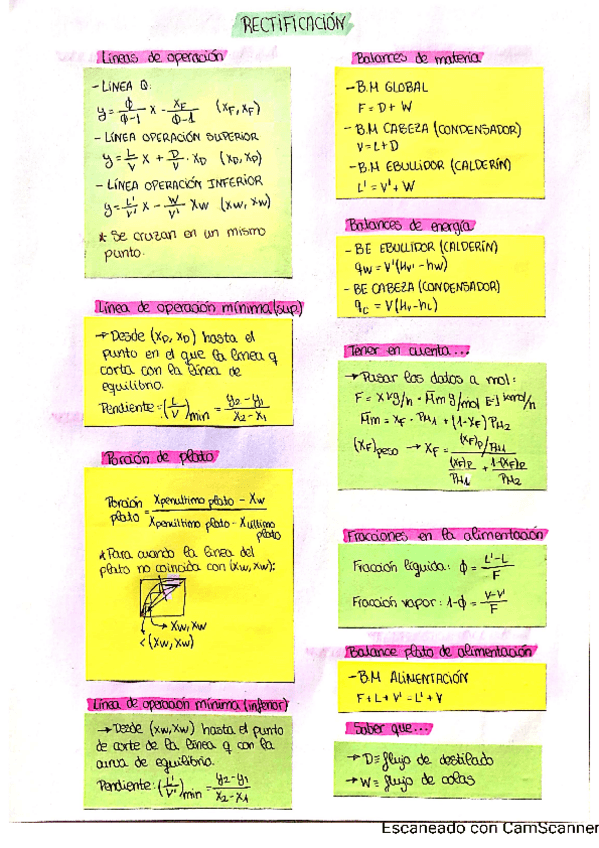 RECTIFICACIÓN
Líneas de operación
- LÍNEA Q:
y = ϕ/(ϕ-1) x - x_F/(ϕ-1) (x_F, x_F)
- LÍNEA OPERACIÓN SUPERIOR
y = L/V x + D/V · x_D (x_D, x_D)
- LÍNEA OPERACIÓN INFERIOR
y = L'/V' x - W/V' x_W (x_W, x_W)
* Se cruzan en un mismo
punto.
Línea de operación mínima (sup.)
→ Desde (x_D, x_D) hasta el
punto en el que la línea q
corta con la línea de
equilibrio.
Pendiente: (L/V)min = (y2-y1)/(x2-x1)
Porción de plato
Porción plato = (Xpenúltimo plato - Xw)/(Xpenúltimo plato - Xúltimo plato)
* Para cuando la línea del
plato no coincida con (xw, xw):
→ xw, xw
< (xw, xw)
Línea de operación mínima (inferior)
→ Desde (xw, xw) hasta el punto
de corte de la línea q con la
curva de equilibrio.
Pendiente: (L'/V')min = (y2-y1)/(x2-x1)
Balances de materia
- B.M GLOBAL
F = D + W
- B.M CABEZA (CONDENSADOR)
V = L + D
- B.M EBULLIDOR (CALDERÍN)
L' = V' + W
Balances de energía
- BE EBULLIDOR (CALDERÍN)
q_w = V'(H_v' - h_w)
- BE CABEZA (CONDENSADOR)
q_c = V(H_v - h_L)
Tener en cuenta...
→ Pasar los datos a mol:
F = X kg/h · M̄m g/mol E-3 kmol/h
M̄m = x_F · PM1 + (1-x_F) PM2
(x_F)peso → x_F = ((x_F)p/PM1)/((x_F)p/PM1 + (1-(x_F)p)/PM2)
Fracciones en la alimentación
Fracción líquida: ϕ = (L'-L)/F
Fracción vapor: 1-ϕ = (V-V')/F
Balance plato de alimentación
- B.M ALIMENTACIÓN
F + L + V' = L' + V
Saber que...
→ D ≡ flujo de destilado
→ W ≡ flujo de colas
Escaneado con CamScanner